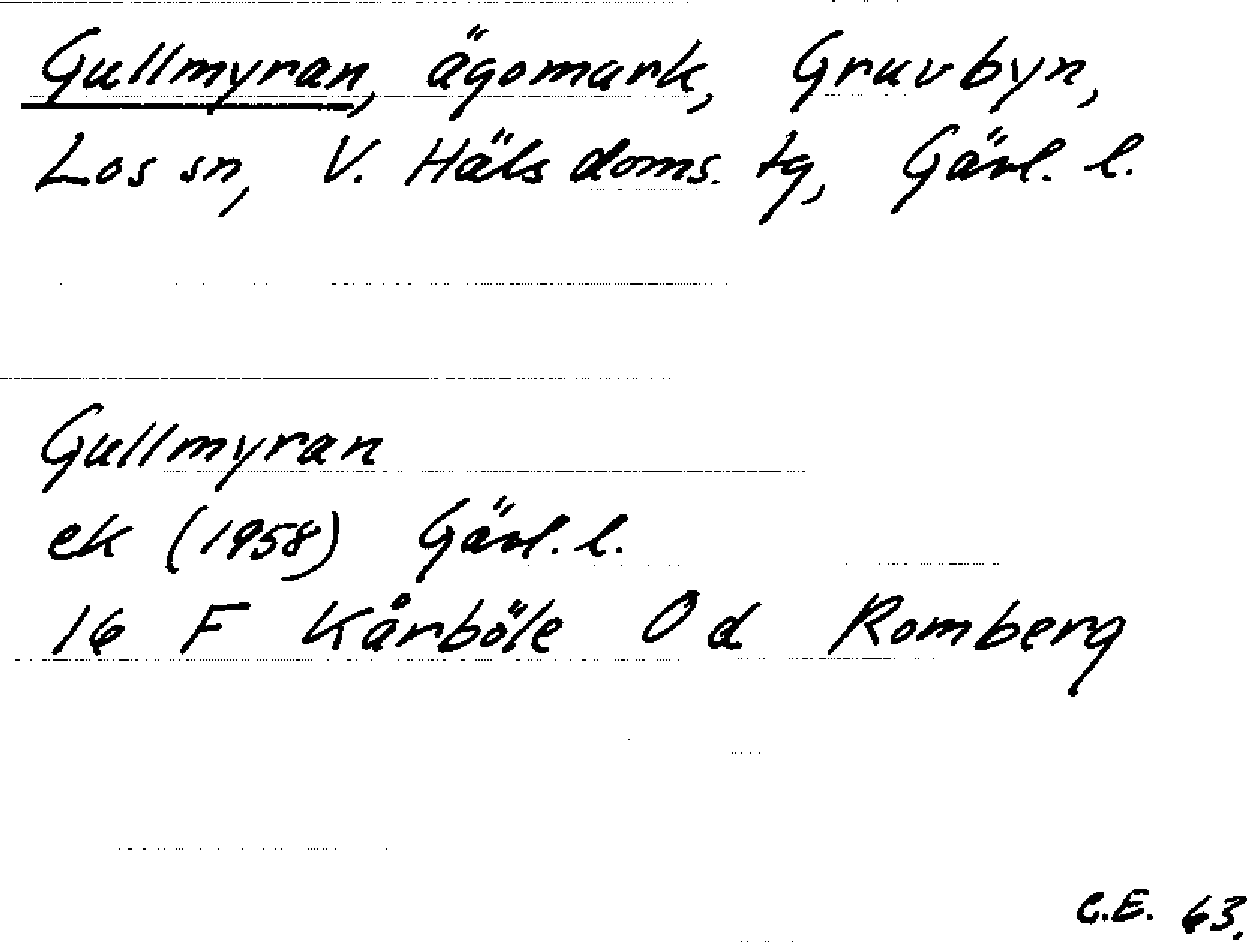 Gullmyran, ägomark, Gruvbyn,
Los sn, V. Häls doms. tg, Gävl. l.
Gullmyran
ek (1958) Gävl. l.
16 F Kårböle O d Romberg
C.E. 63.